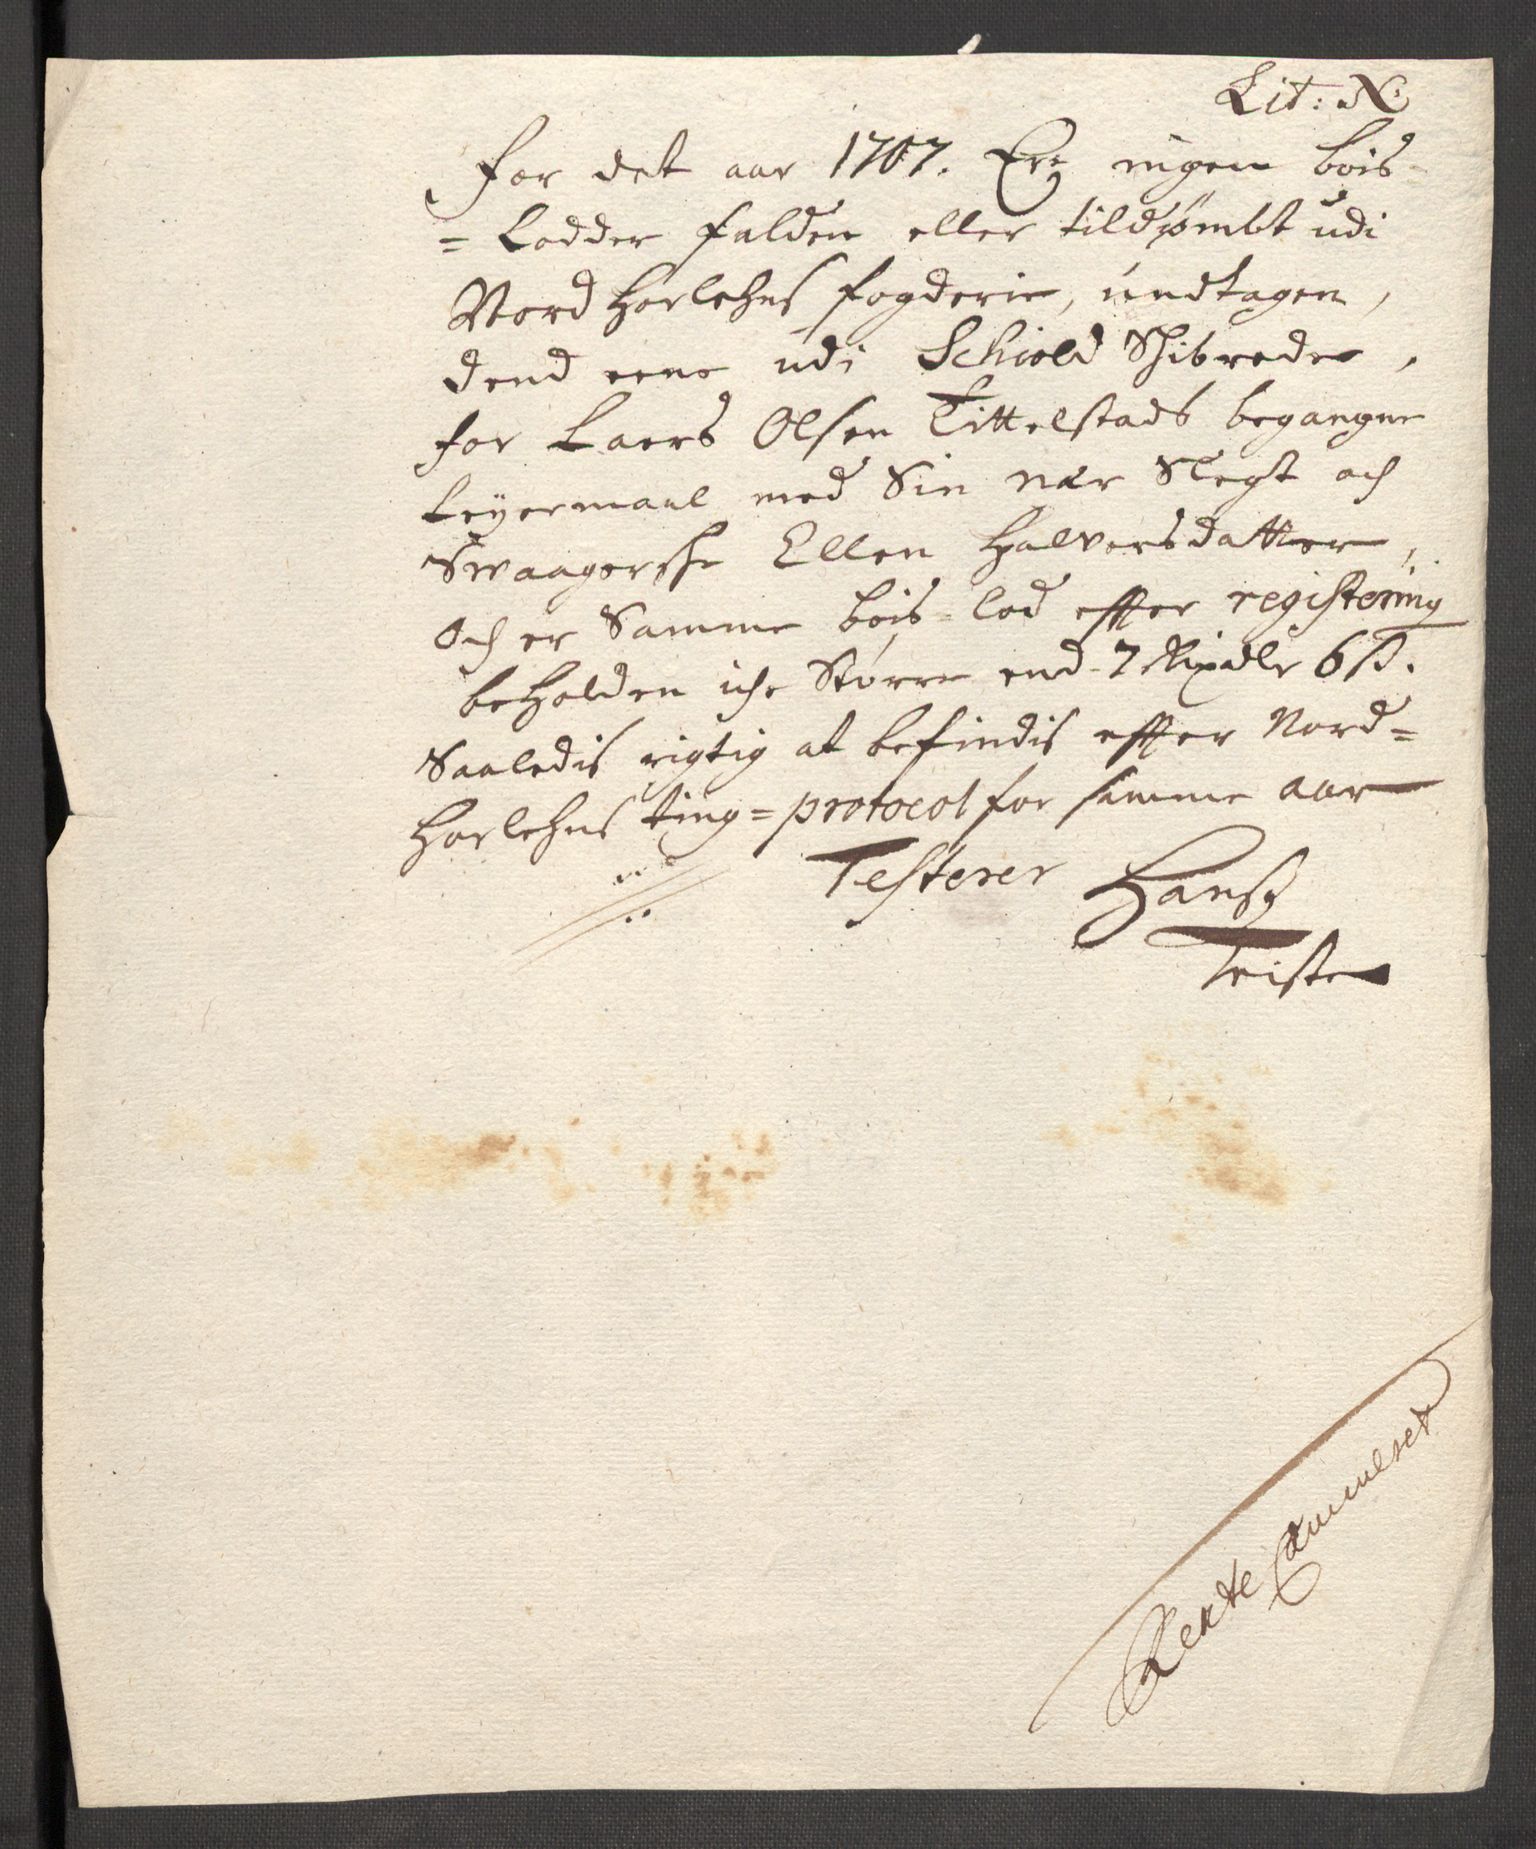 Lit: N:
For det aar 1707. Ere ingen bois
= Lodder falden eller tildømbt udi
Nord Horlehns fogderie, undtagen,
dend eene udi Schiold Schibrede,
for Laers Olsen Tittelstads begangne
Leyermaal med Sin nær Slegt och
Swaagersche Ellen Halvorsdatter,
Och er Samme bois-lod effter registering
beholden iche Større end 7 Rixdlr 6 ß.
Saaledis rigtig at befindis effter Nord=
Horlehns ting=protocol for samme aar
Testerer Hansz
Teiste
Rente Cammeret